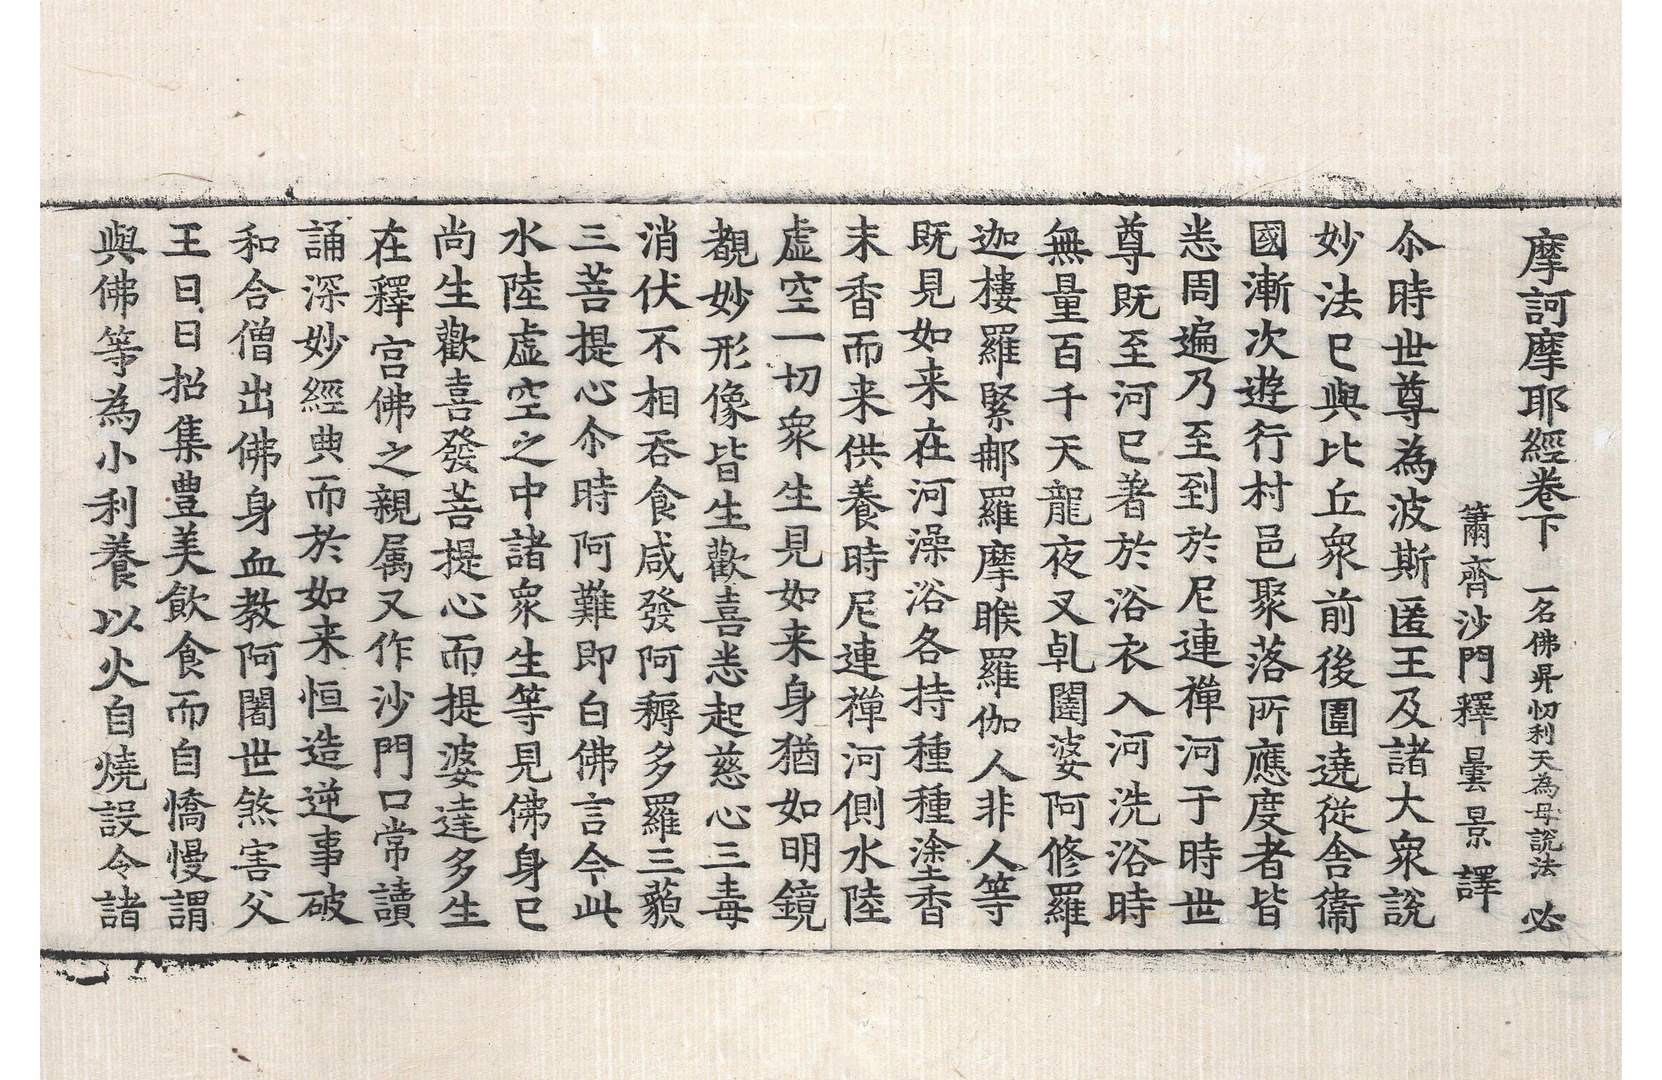 摩訶摩耶經卷下 一名佛昇忉利天為母說法 必
蕭齊沙門釋曇景 譯
尒時世尊為波斯匿王及諸大衆說
妙法已與比丘衆前後圍遶從舍衞
國漸次遊行村邑聚落所應度者皆
悉周遍乃至到於尼連禪河于時世
尊旣至河已著於浴衣入河洗浴時
無量百千天龍夜叉乹闥婆阿修羅
迦樓羅緊那羅摩睺羅伽人非人等
旣見如来在河澡浴各持種種塗香
末香而来供養時尼連禪河側水陸
虛空一切衆生見如来身猶如明鏡
覩妙形像皆生歡喜悉起慈心三毒
消伏不相吞食咸發阿耨多羅三藐
三菩提心尒時阿難即白佛言今此
水陸虛空之中諸衆生等見佛身已
尚生歡喜發菩提心而提婆達多生
在釋宮佛之親属又作沙門口常讀
誦深妙經典而於如来恒造逆事破
和合僧出佛身血教阿闍世煞害父
王日日招集豊美飲食而自憍慢謂
與佛等為小利養以火自燒設令諸